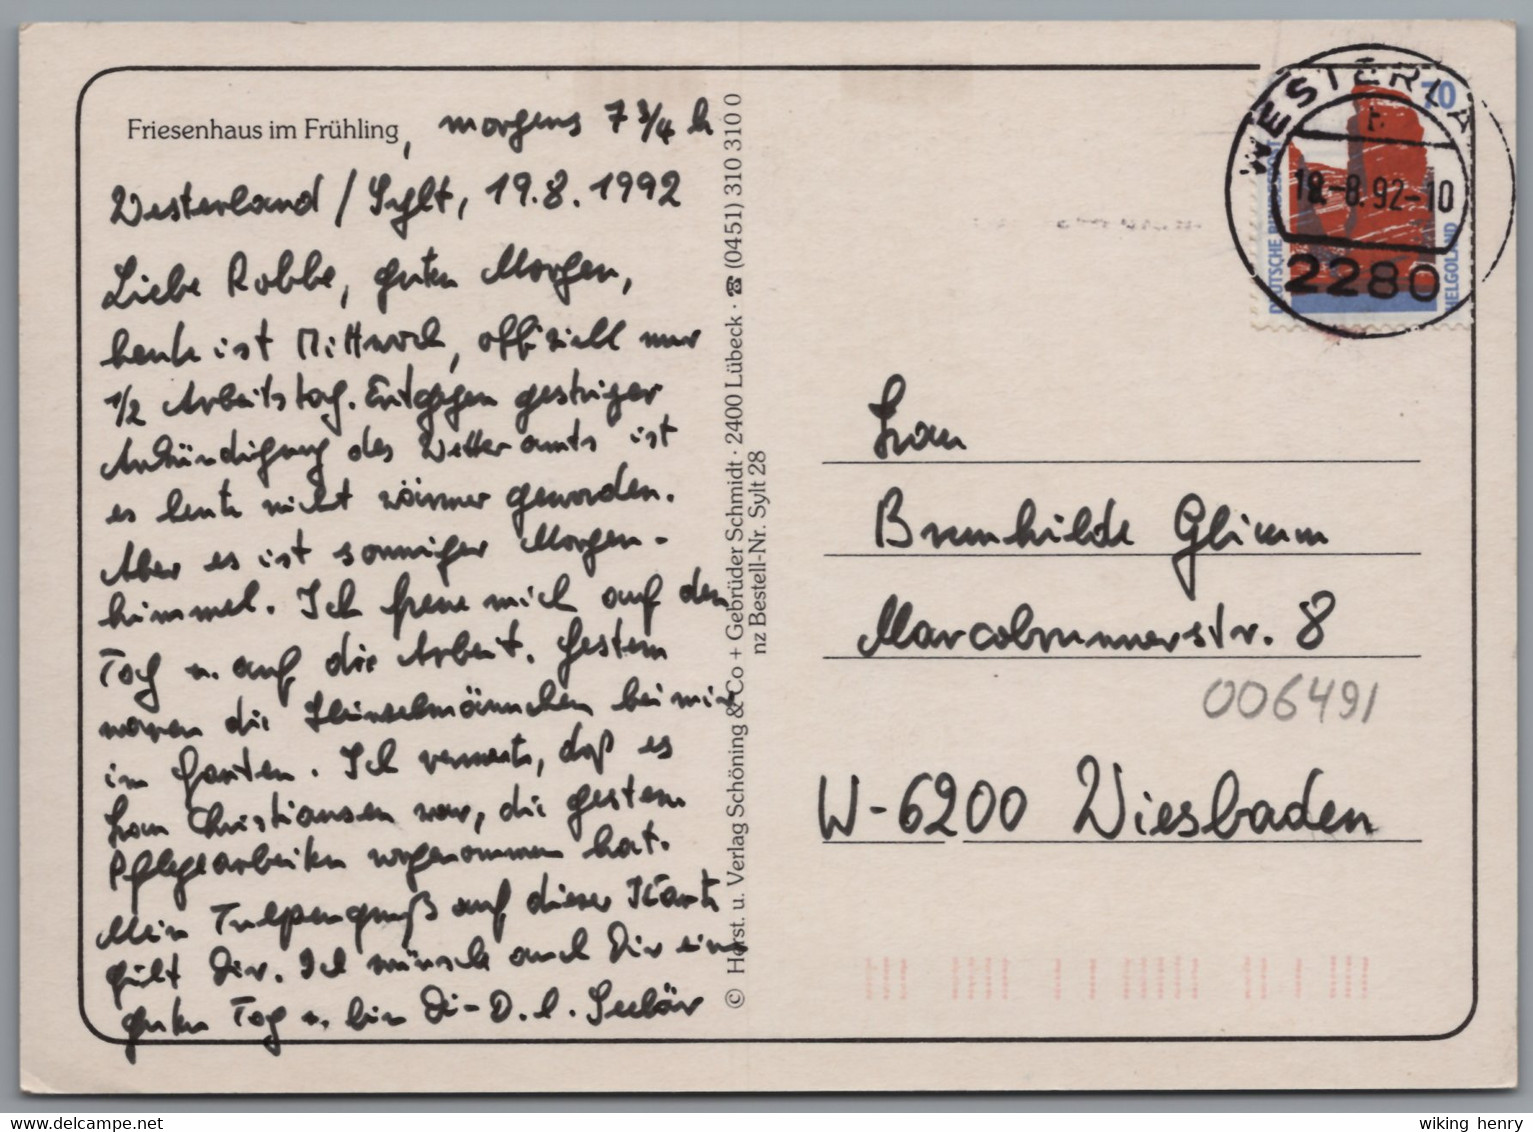 Friesenhaus im Frühling
, morgens 7 3/4 h
Westerland / Sylt, 19.8.1992
Liebe Robbe, guten Morgen,
heute ist Mittwoch, offiziell nur
1/2 Arbeitstag. Entgegen gestriger
Ankündigung des Wetteramts ist
es heute nicht wärmer geworden.
Aber es ist sonniger Morgen-
himmel. Ich freue mich auf den
Tag u. auf die Arbeit. Gestern
waren die Heinzelmännchen bei mir
im Garten. Ich vermute, daß es
Frau Christiansen war, die gestern
Pflegearbeiten vorgenommen hat.
Mein Tulpengruß auf dieser Karte
gilt Dir. Ich wünsche auch Dir ein
guten Tag u. bin Di-D. l. Seebär
© Horst. u. Verlag Schöning & Co + Gebrüder Schmidt · 2400 Lübeck · ☎ (0451) 310 310 0
nz Bestell-Nr. Sylt 28
WESTERLA
70
DEUTSCHE BUNDESPOST
HELGOLAND
-8.92-10
2280
Frau
Brunhilde Glimm
Marcobrunnerstr. 8
006491
W-6200 Wiesbaden
www.delcampe.net
wiking henry